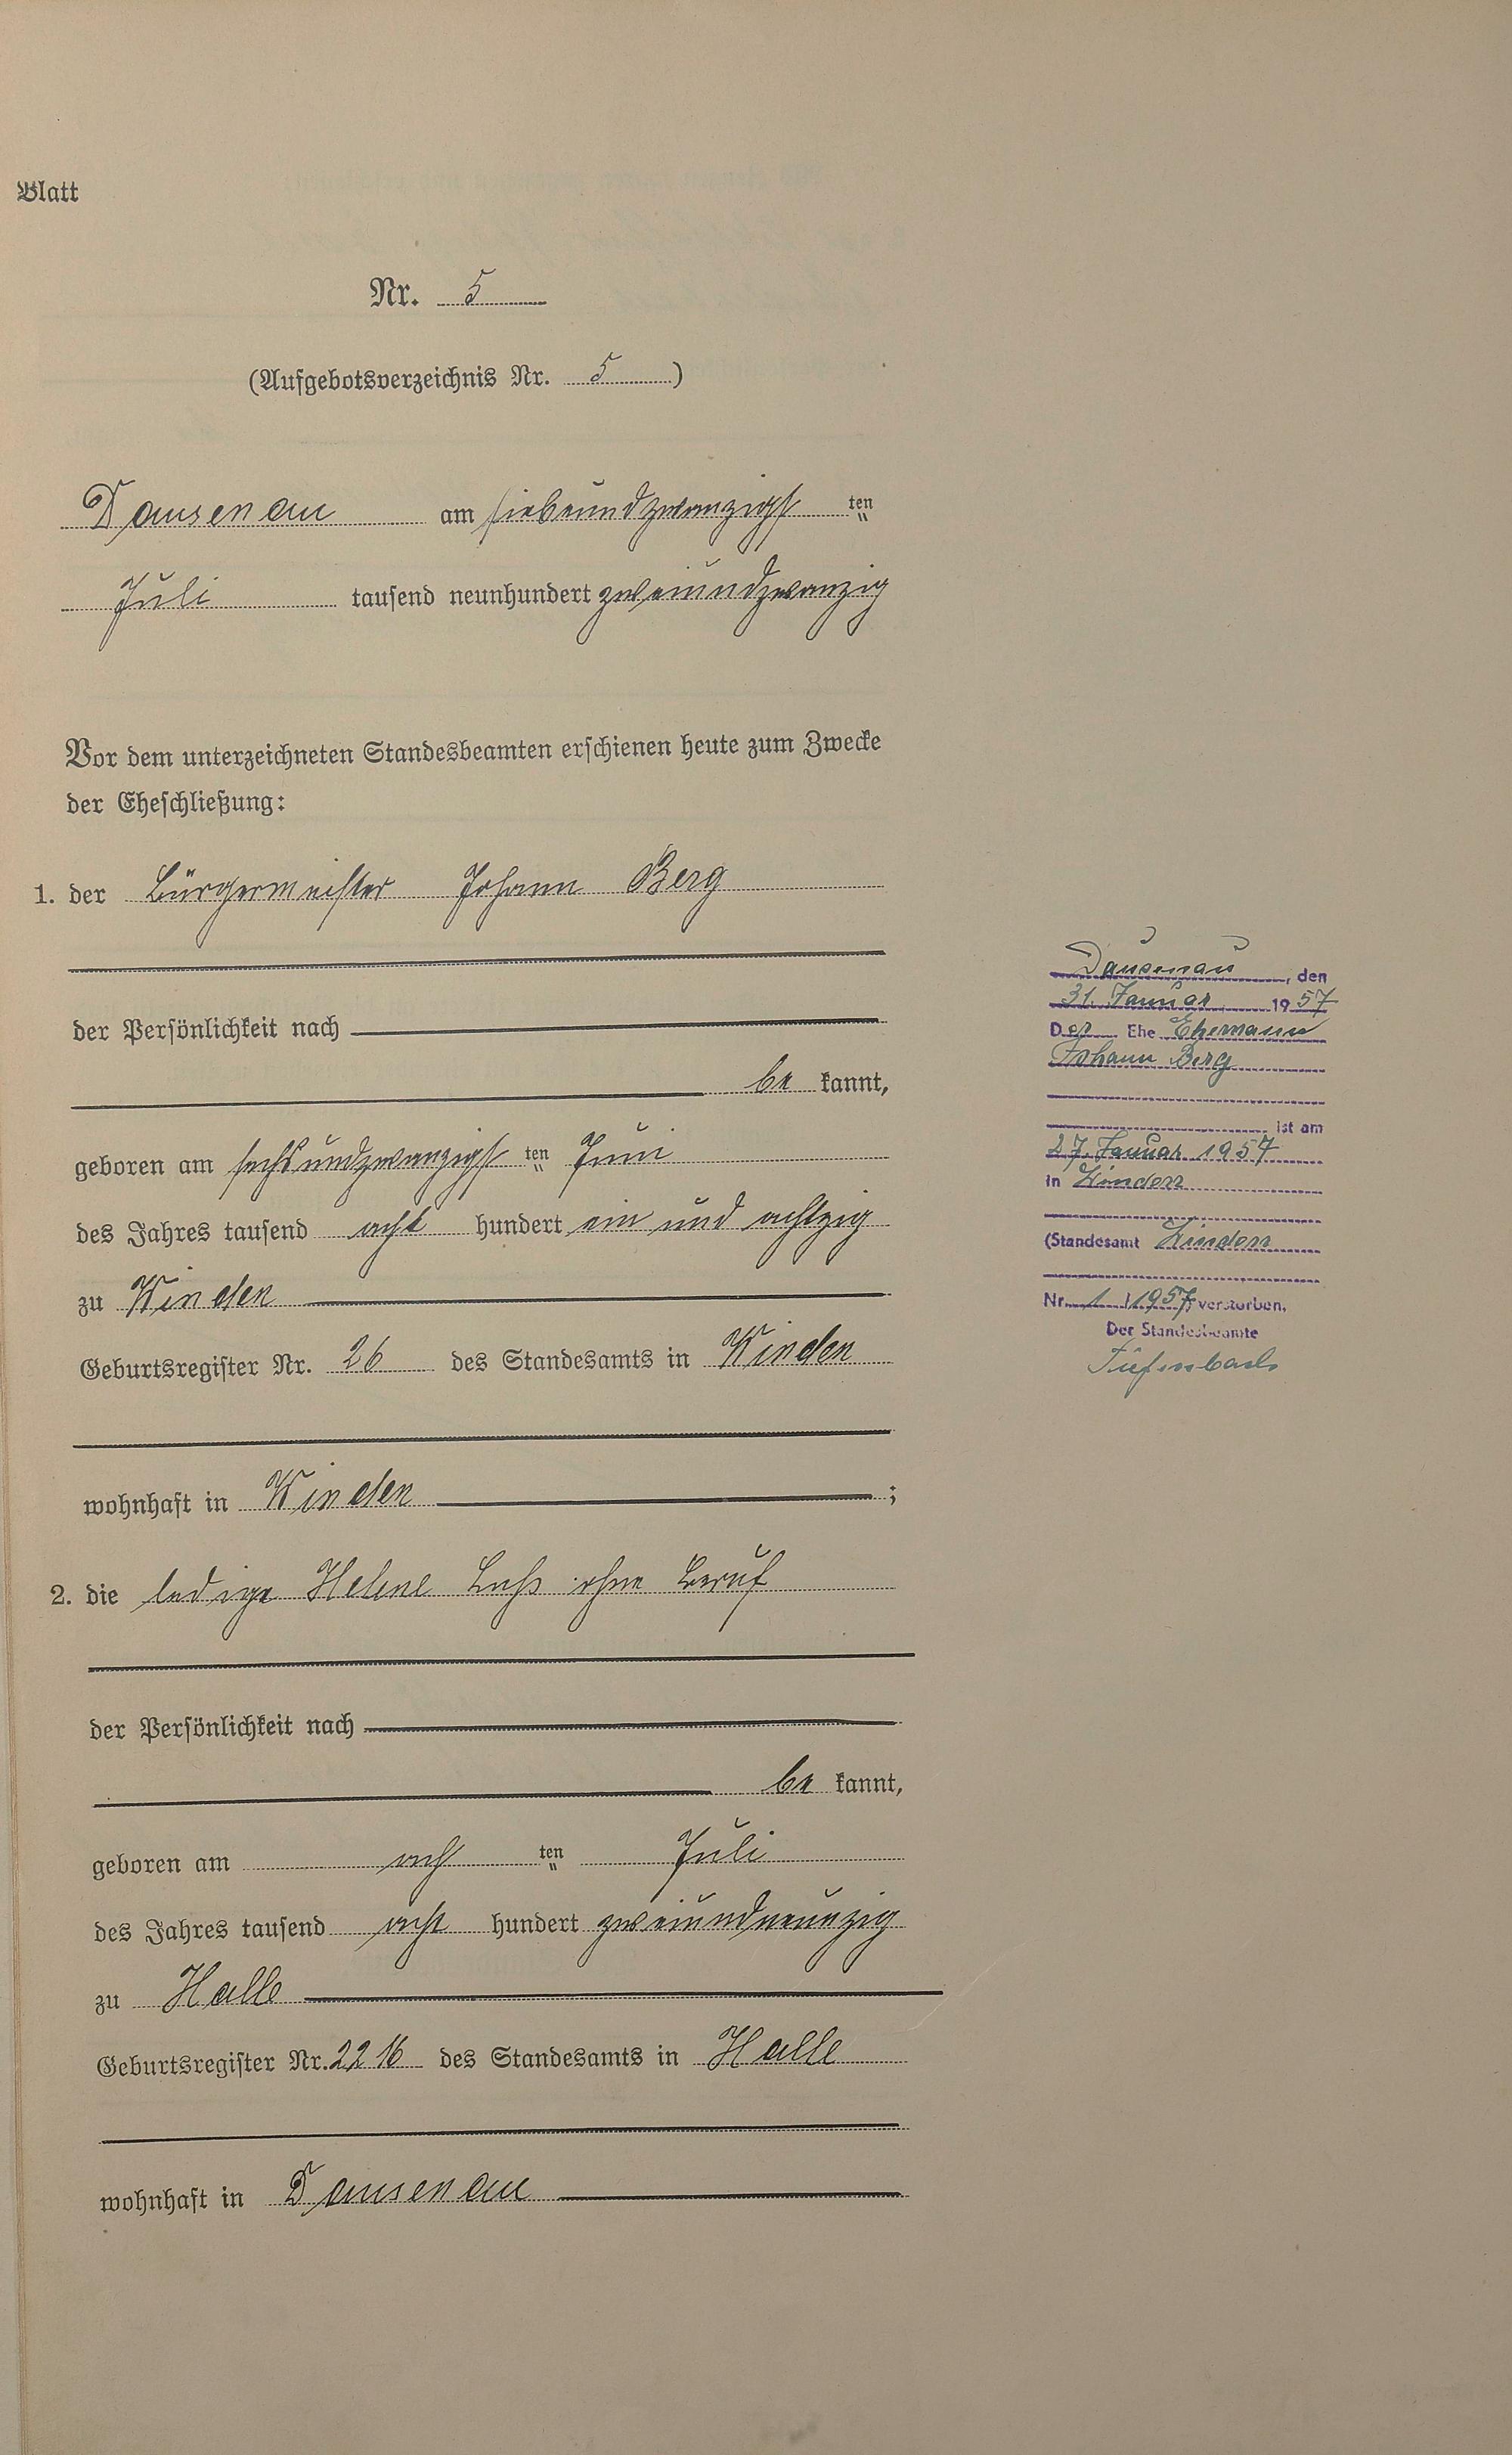 Blatt
Nr. 5
(Aufgebotsverzeichnis Nr. 5)
Dausenau am siebundzwanzigst ten
Juli tausend neunhundert zweiundzwanzig
Vor dem unterzeichneten Standesbeamten erschienen heute zum Zwecke
der Eheschließung:
1. der Bürgermeister Johann Berg
der Persönlichkeit nach
be kannt,
geboren am sechsundzwanzigst ten Juni
des Jahres tausend acht hundert ein und achtzig
zu Winden
Geburtsregister Nr. 26 des Standesamts in Winden
wohnhaft in Winden ;
2. die ledige Helene ohne Beruf
der Persönlichkeit nach
be kannt,
geboren am acht ten Juli
des Jahres tausend acht hundert zweiundneunzig
zu Halle
Geburtsregister Nr. 2216 des Standesamts in Halle
wohnhaft in Dausenau
Dausenau, den
31. Januar 1957
Der Ehe Ehemann
Johann Berg
ist am
27. Januar 1957
in Winden
(Standesamt Winden
Nr. 1/1957) verstorben.
Der Standesbeamte
Tiefenbach